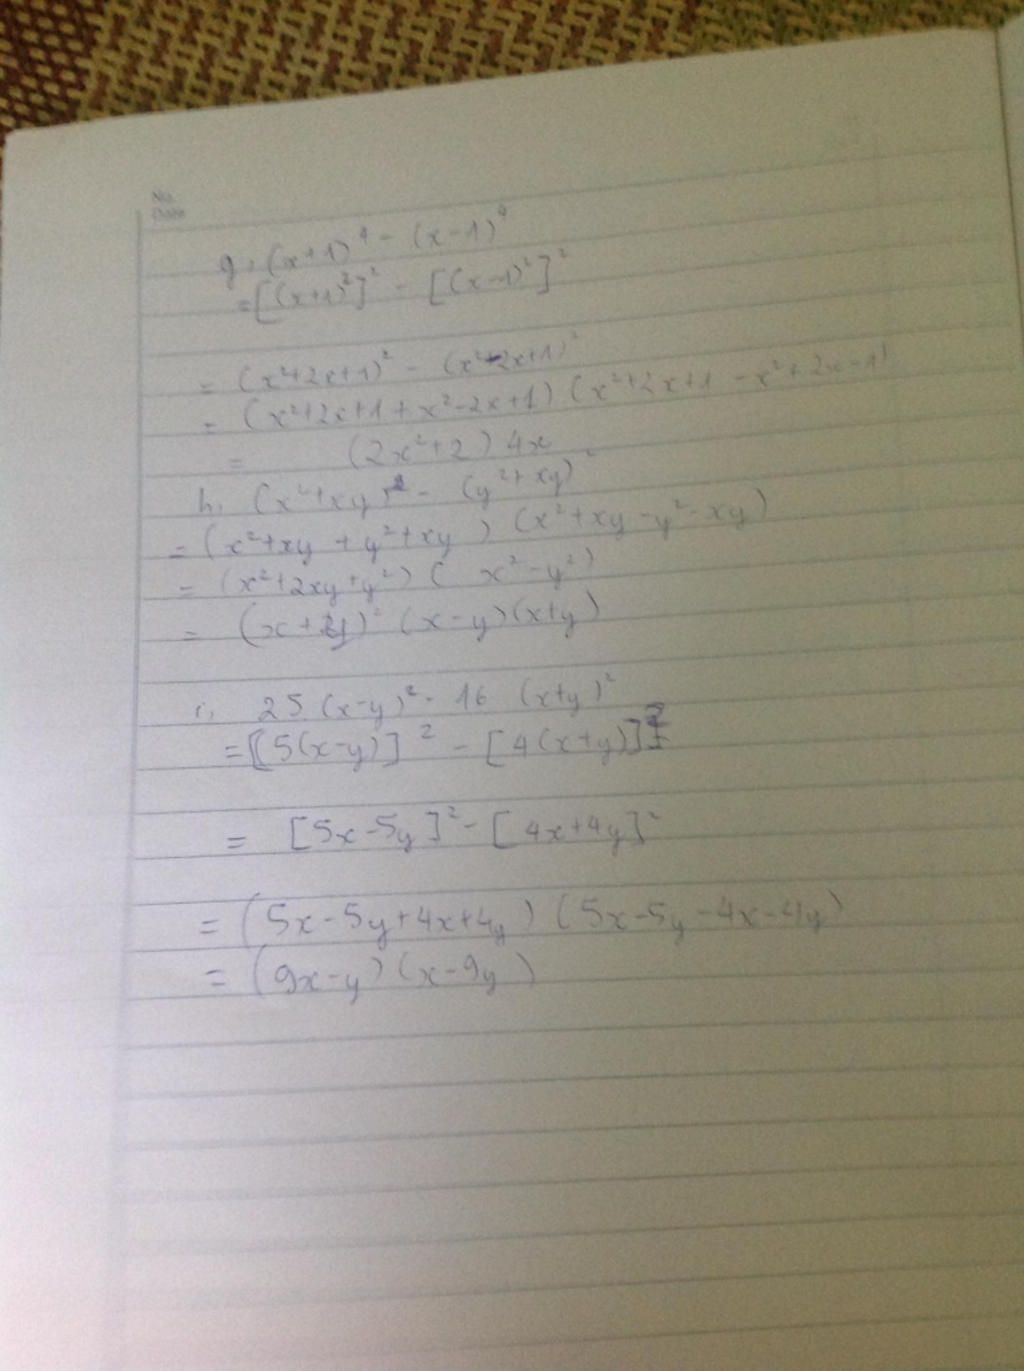 No.
Date
g, (x+1)⁴ - (x-1)⁴
= [(x+1)²]² - [(x-1)²]²
= (x²+2x+1)² - (x²-2x+1)²
= (x²+2x+1+x²-2x+1) (x²+2x+1-x²+2x-1)
= (2x²+2) 4x
h, (x²+xy)² - (y²+xy)²
= (x²+xy+y²+xy) (x²+xy-y²-xy)
= (x²+2xy+y²) (x²-y²)
= (x+y)² (x-y)(x+y)
i, 25 (x-y)² - 16 (x+y)²
= [5(x-y)]² - [4(x+y)]²
= [5x-5y]² - [4x+4y]²
= (5x-5y+4x+4y) (5x-5y-4x-4y)
= (9x-y) (x-9y)